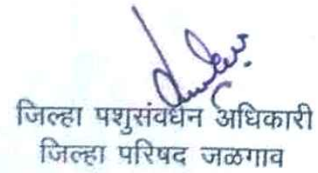 जिल्हा पशुसंवर्धन अधिकारी
जिल्हा परिषद जळगाव